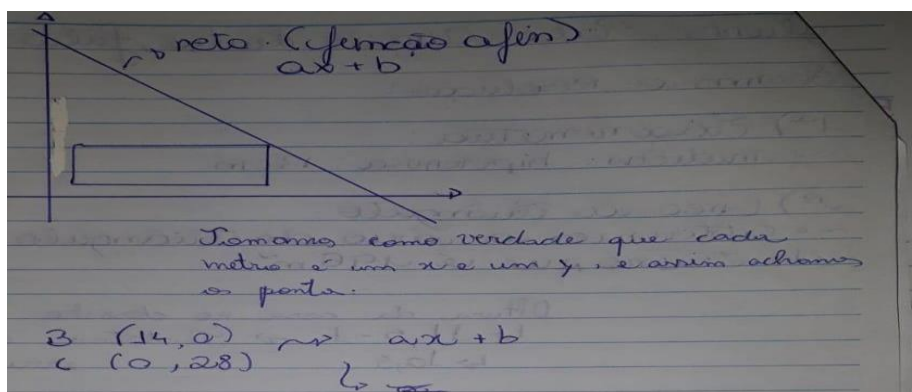 reta. (função afin)
ax + b
Tomamos como verdade que cada
metro é um x e um y, e assim achamos
os ponto.
B (14,0) ~> ax + b
C (0,28)